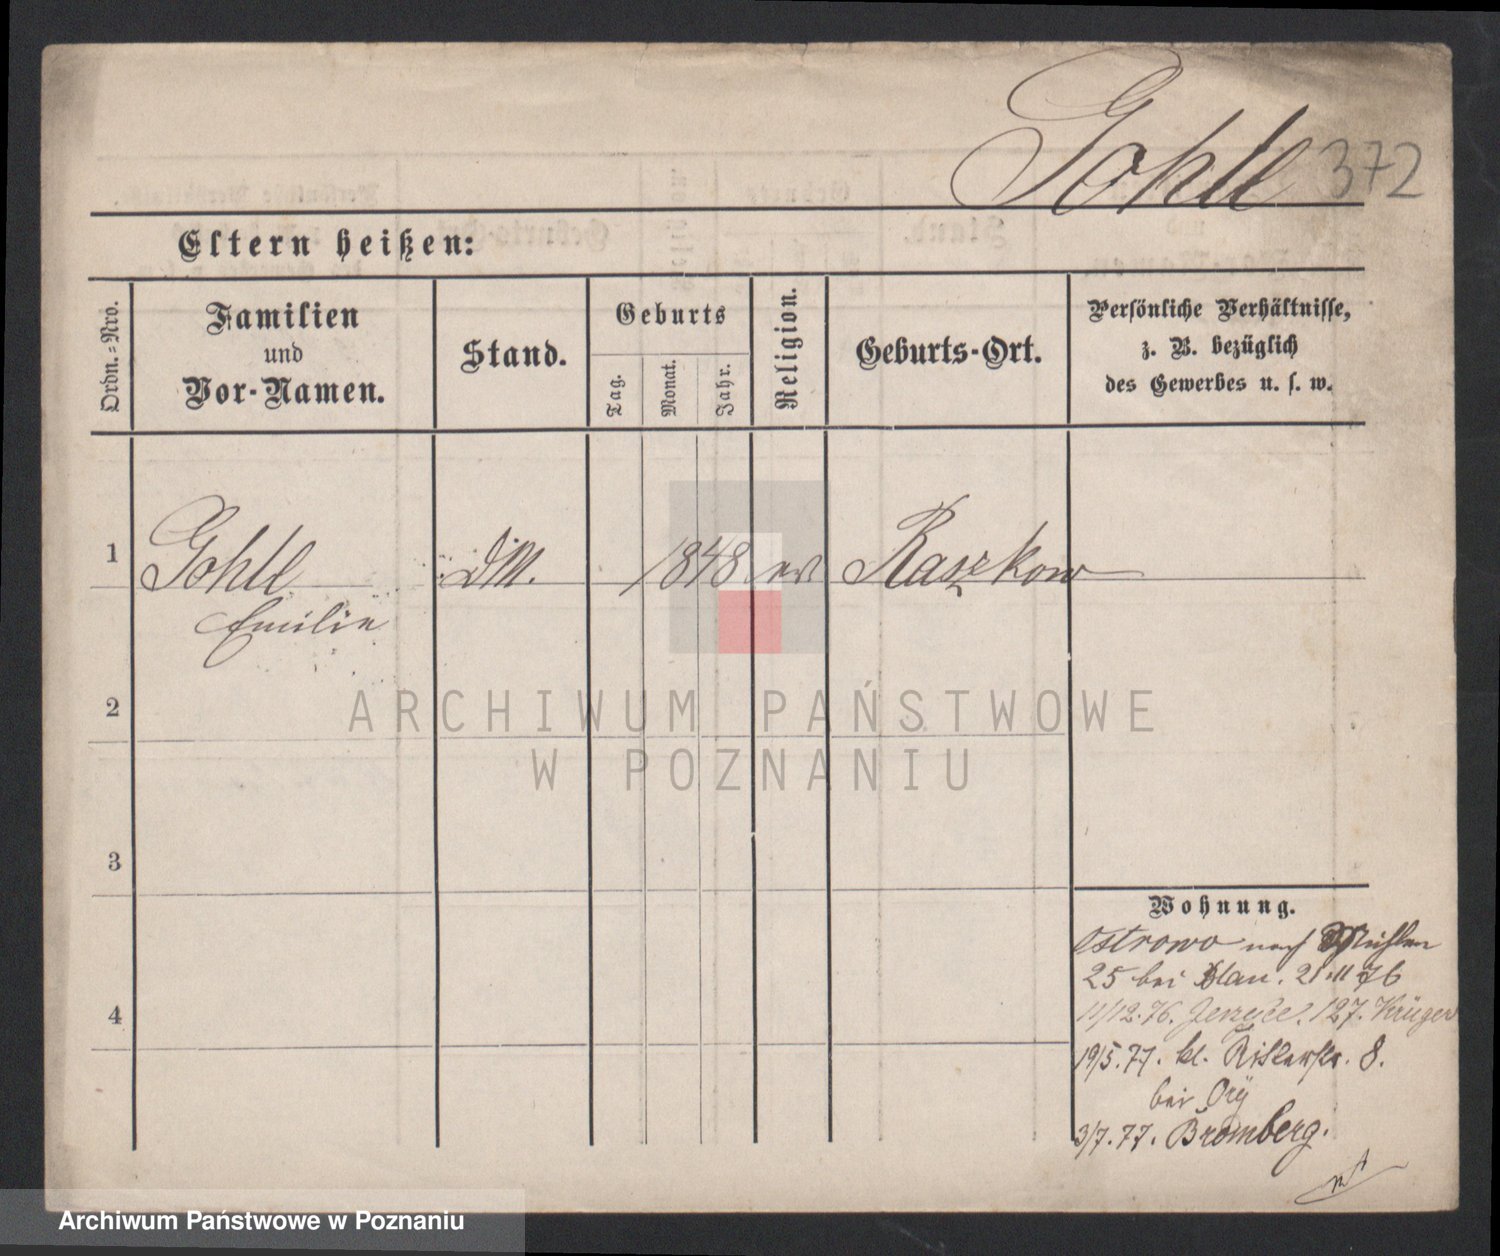 Gohll 372
Eltern heißen:
Ordn.=Nro.
Familien
und
Vor-Namen.
Stand.
Geburts
Tag.
Monat.
Jahr.
Religion.
Geburts-Ort.
Persönliche Verhältnisse,
z. B. bezüglich
des Gewerbes u. s. w.
1
Gohll DM. 1848 ev Raszkow
Emilie
2
ARCHIWUM PAŃSTWOWE
W POZNANIU
3
Wohnung.
Ostrowo nach Mühlen
25 bei Blau. 21.11 76
4
11/12.76. Jerzyce. 127. Krüger
19/5.77. kl. Ritterstr. 8.
bei
3/7.77. Bromberg.
Archiwum Państwowe w Poznaniu